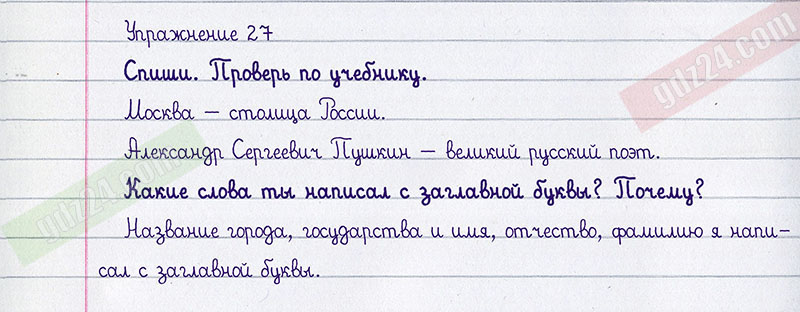 Упражнение 27
Спиши. Проверь по учебнику.
Москва — столица России.
Александр Сергеевич Пушкин — великий русский поэт.
Какие слова ты написал с заглавной буквы? Почему?
Название города, государства и имя, отчество, фамилию я напи-
сал с заглавной буквы.
gdz24.com
gdz24.com